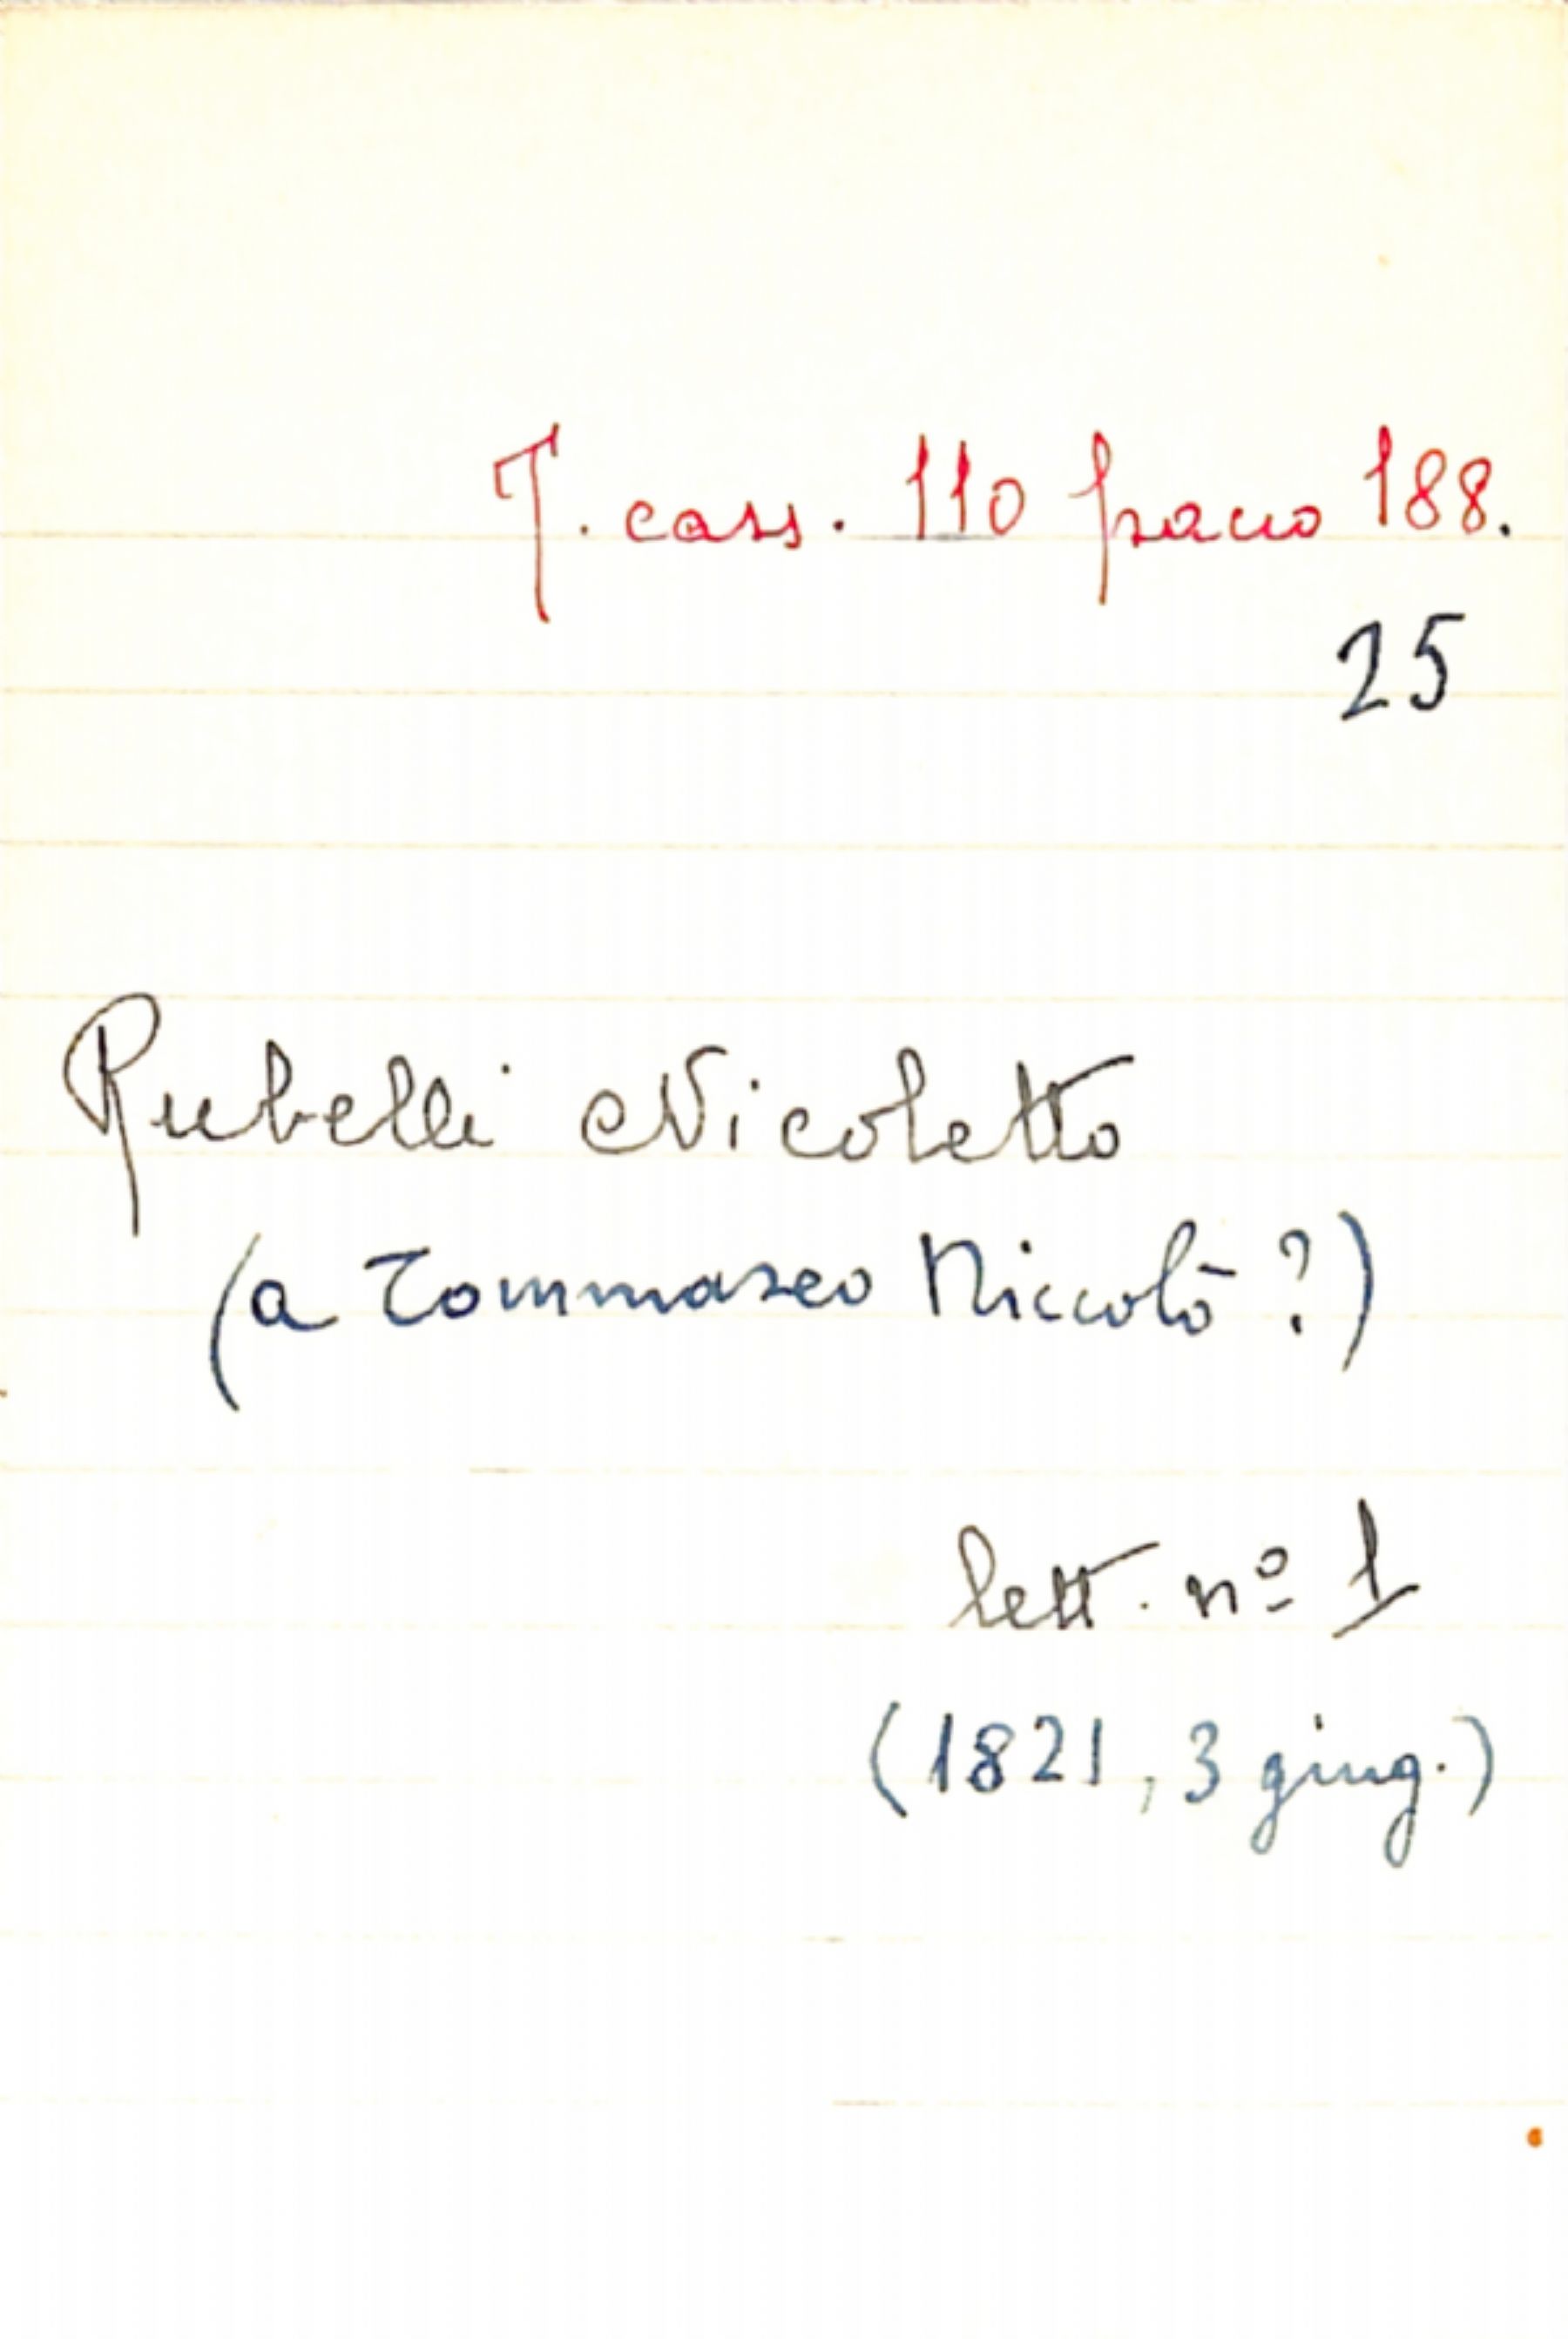 T. cass. 110 pacco 188.
25
Rubelli Nicoletto
(a Tommaseo Niccolò ?)
lett. nº 1
(1821, 3 giug.)